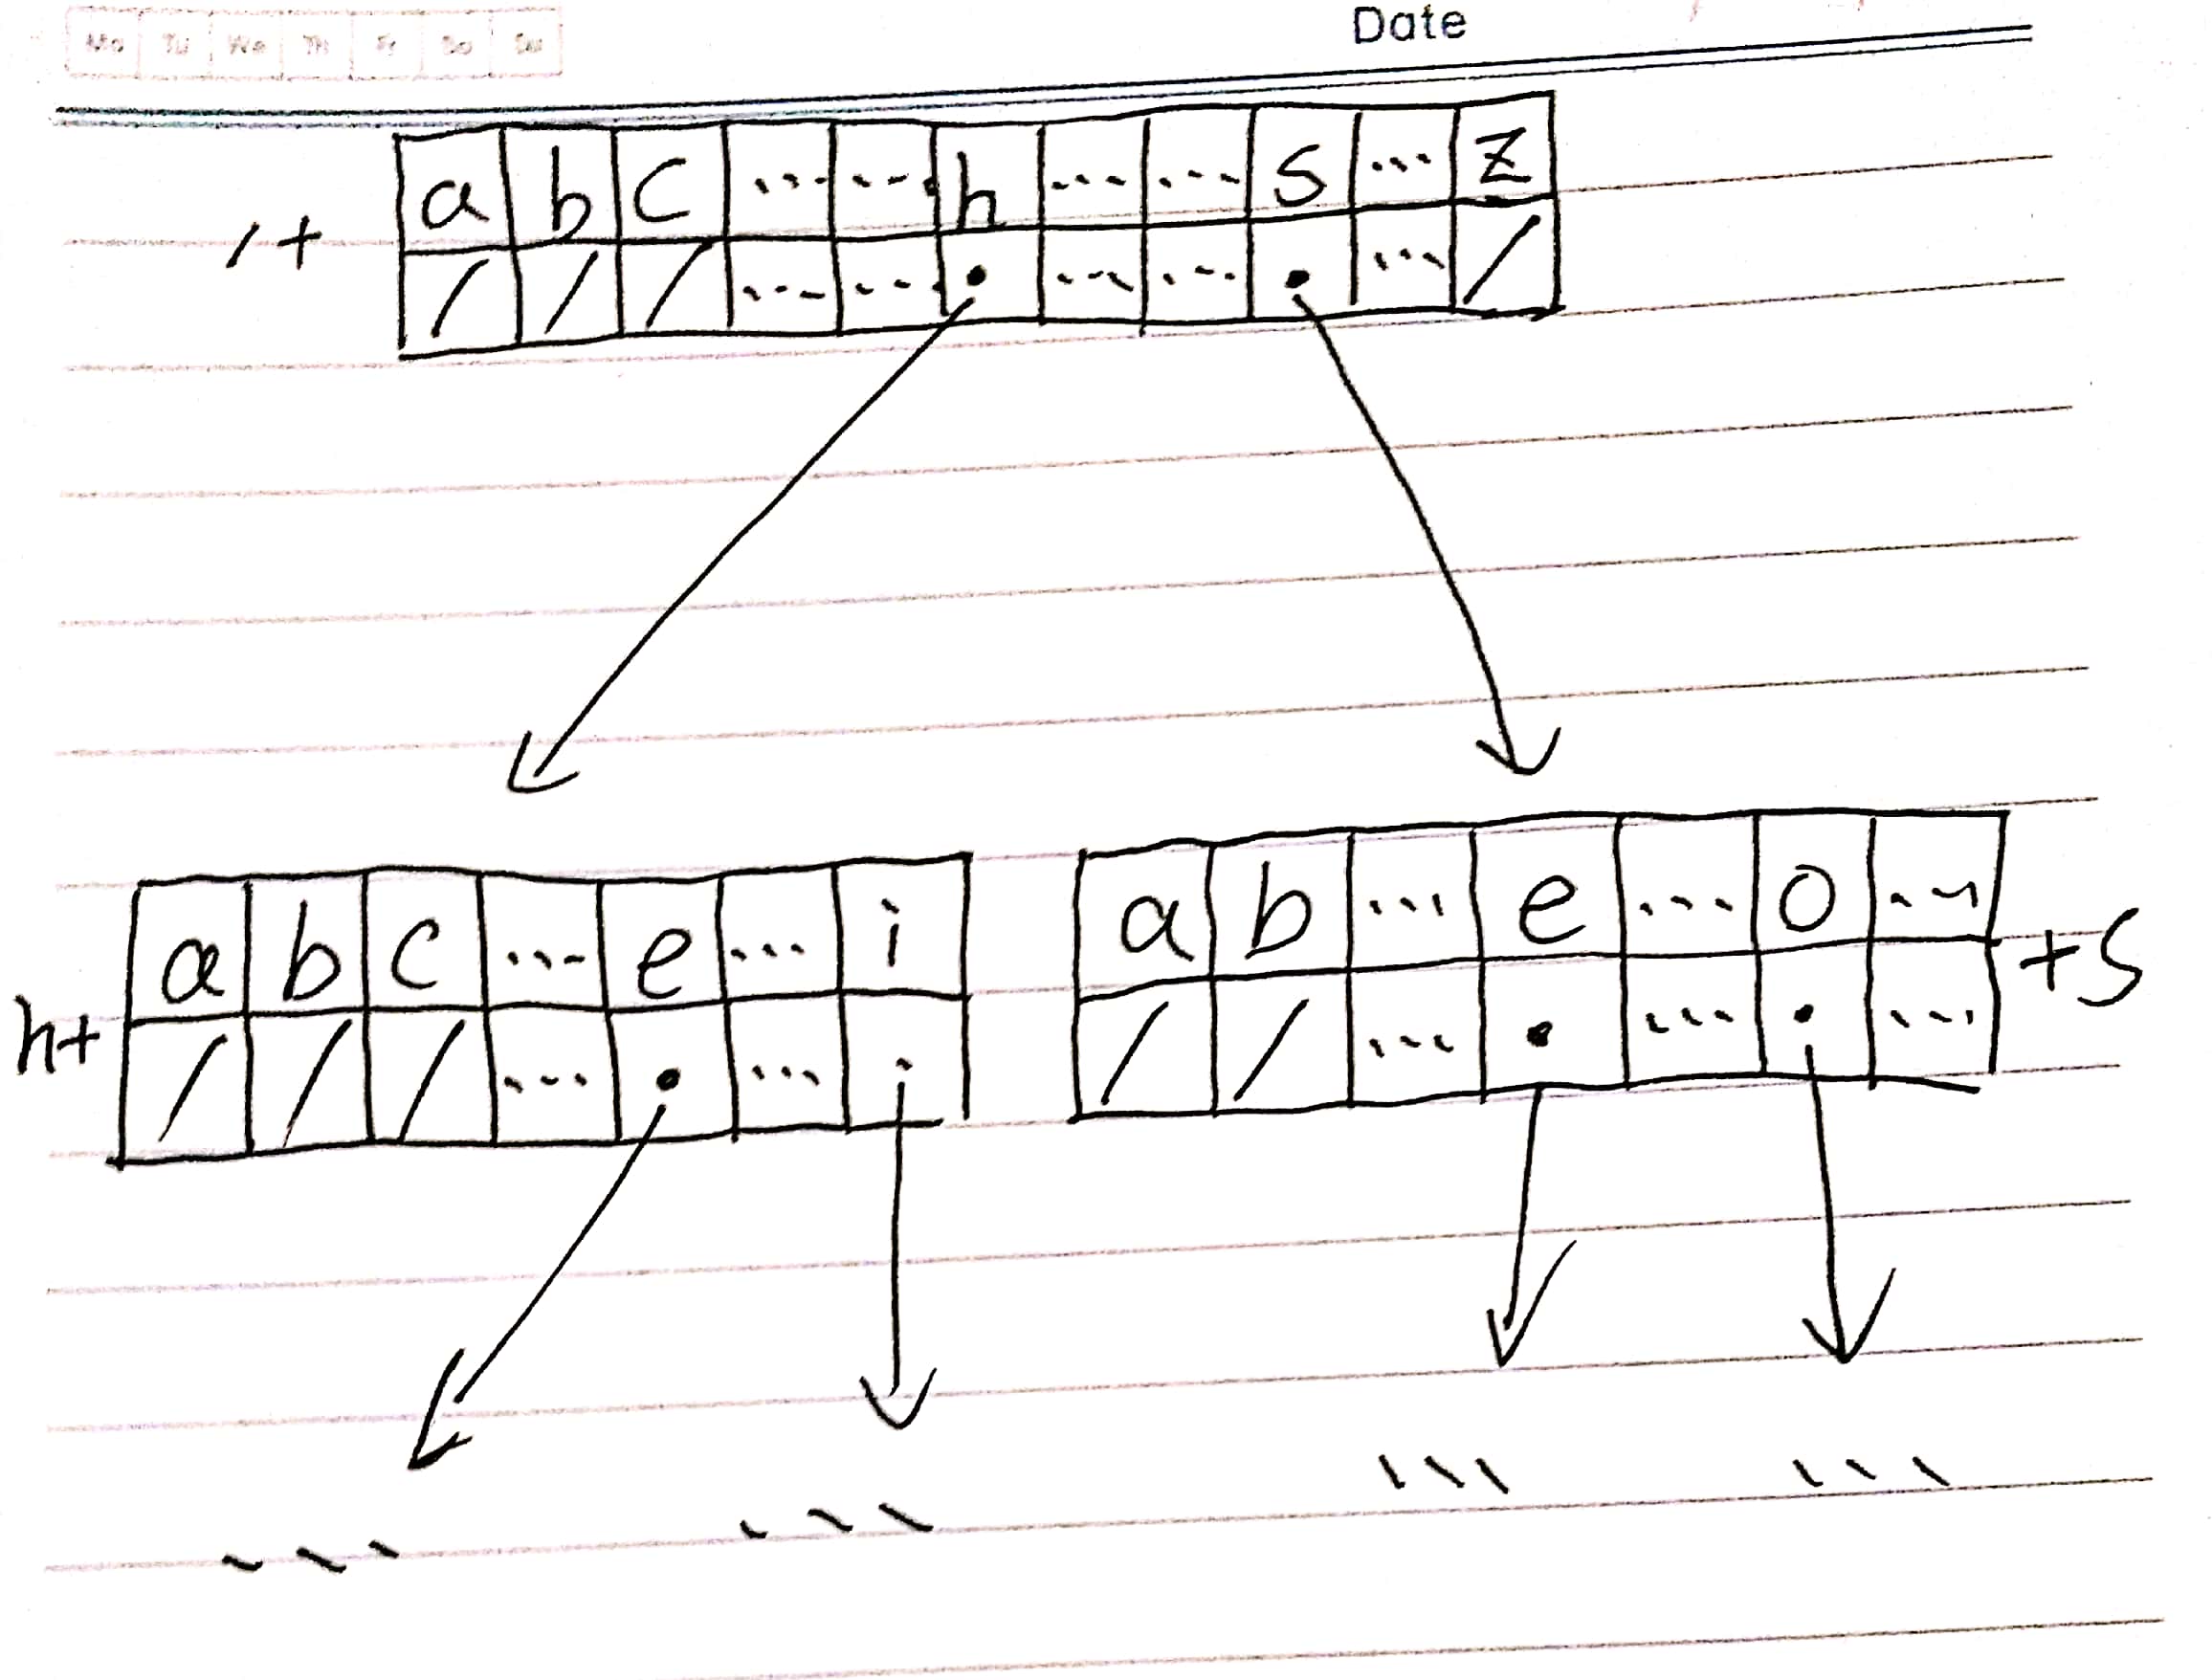 Mo Tu We Th Fr Sa Su
Date
/ + a b c ... ... h ... ... s ... z
/ / / ... ... • ... ... • ... /
h+ a b c ... e ... i
/ / / ... • ... •
a b ... e ... o ... +s
/ / ... • ... • ...
... ... ... ...